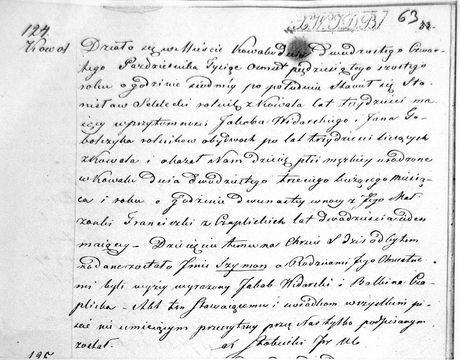 63
124
Kowal
Działo się w Mieście Kowalu Dnia Dwudziestego Czwar-
tego Pazdziernika Tysiąc Ośmset pięćdziesiątego szóstego
roku o godzinie siodmey po południu stawił się Sta-
nisław rolnik z Kowala lat trzydzieści ma-
iący w przytomności Jakoba Widarskiego i Jana
rolników obydwoch po lat trzydzieści liczących
z Kowala i okazał Nam Dziecię płci męzkiey urodzone
w Kowalu Dnia Dwudziestego trzeciego bieżącego Miesią-
ca i roku o Godzinie Dwunastey w nocy z Jego Mał-
zonki Franciszki z Czaplickich lat Dwadzieścia ieden
maiącey – Dziecięciu temu na Chrzcie S dziś odbytym
nadane zostało Imie Szymon a Rodzicami Jego Chrzestne-
mi byli wyzey wyrazony Jakob Widarski i Balbina Cza-
plicka – Akt ten Stawaiącemu i swiadkom wszystkim pi-
sać nie umieiącym przeczytany przez Nas tylko podpisanym
został.
125